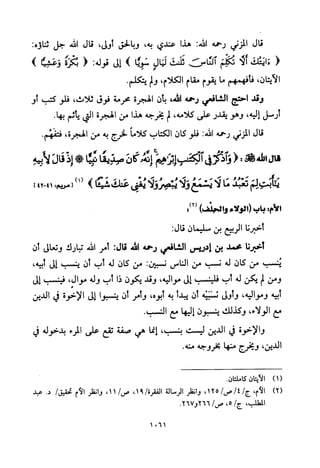 قال المزني رحمه الله: هذا عندي به، وبالحق أولى، قال الله جل ثناؤه:
﴿ ءَايَتُكَ أَلَّا تُكَلِّمَ ٱلنَّاسَ ثَلَٰثَ لَيَالٍ سَوِيًّا ﴾ إلى قوله: ﴿ بُكْرَةً وَعَشِيًّا ﴾
الآيتان، فأفهمهم ما يقوم مقام الكلام، ولم يتكلم.
وقد احتج الشافعي رحمه الله، بأن الهجرة محرمة فوق ثلاث، فلو كتب أو
أرسل إليه، وهو يقدر على كلامه، لم يخرجه هذا من الهجرة التي يأثم بها.
قال المزني رحمه الله: فلو كان الكتاب كلاماً لخرج به من الهجرة، فتفهم.
قال الله ﷻ: ﴿ وَٱذْكُرْ فِى ٱلْكِتَٰبِ إِبْرَٰهِيمَ إِنَّهُۥ كَانَ صِدِّيقًا نَّبِيًّا * إِذْ قَالَ لِأَبِيهِ
يَٰٓأَبَتِ لِمَ تَعْبُدُ مَا لَا يَسْمَعُ وَلَا يُبْصِرُ وَلَا يُغْنِى عَنكَ شَيْـًٔا ﴾ (١) [مريم: ٤١-٤٢]
الأم: باب (الولاء والحلف) (٢)
أخبرنا الربيع بن سليمان قال:
أخبرنا محمد بن إدريس الشافعي رحمه الله قال: أمر الله تبارك وتعالى أن
يُنسب من كان له نسب من الناس نسبين: من كان له أب أن ينسب إلى أبيه،
ومن لم يكن له أب فلينسب إلى مواليه، وقد يكون ذا أب وله موالٍ، فينسب إلى
أبيه ومواليه، وأولى نسبَيْه أن يبدأ به أبوه، وأمر أن ينسبوا إلى الإخوة في الدين
مع الولاء، وكذلك ينسبون إليها مع النسب.
والإخوة في الدين ليست بنسب، إنما هي صفة تقع على المرء بدخوله في
الدين، ويخرج منها بخروجه منه.
(١) الآيتان كاملتان.
(٢) الأم، ج/٤/ص/١٢٥، وانظر الرسالة الفقرة/١٩، ص/١١، وانظر الأم تحقيق/ د. عبد
المطلب، ج/٥، ص/٢٦٦و٢٦٧.
١٠٦١